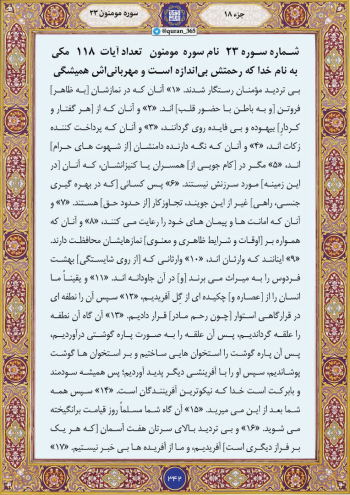 جزء ۱۸
@quran_365
سوره مومنون ۲۳
شماره سوره ۲۳ نام سوره مومنون تعداد آیات ۱۱۸ مکی
به نام خدا که رحمتش بی‌اندازه است و مهربانی‌اش همیشگی
بی تردید مؤمنان رستگار شدند. «۱» آنان که در نمازشان [به ظاهر]
فروتن [و به باطن با حضور قلب] اند. «۲» و آنان که از [هر گفتار و
کردار] بیهوده و بی فایده روی گردانند، «۳» و آنان که پرداخت کننده
زکات اند، «۴» و آنان که نگه دارنده دامنشان [از شهوت های حرام]
اند، «۵» مگر در [کام جویی از] همسران یا کنیزانشان، که آنان [در
این زمینه] مورد سرزنش نیستند. «۶» پس کسانی [که در بهره گیری
جنسی، راهی] غیر از این جویند، تجاوزکار [از حدود حق] هستند. «۷» و
آنان که امانت ها و پیمان های خود را رعایت می کنند، «۸» و آنان که
همواره بر [اوقات و شرایط ظاهری و معنوی] نمازهایشان محافظت دارند.
«۹» اینانند که وارثان اند، «۱۰» وارثانی که [از روی شایستگی] بهشت
فردوس را به میراث می برند [و] در آن جاودانه اند. «۱۱» و یقیناً ما
انسان را از [عصاره و] چکیده ای از گل آفریدیم، «۱۲» سپس آن را نطفه ای
در قرارگاهی استوار [چون رحم مادر] قرار دادیم. «۱۳» آن گاه آن نطفه
را علقه گرداندیم، پس آن علقه را به صورت پاره گوشتی درآوردیم،
پس آن پاره گوشت را استخوان هایی ساختیم و بر استخوان ها گوشت
پوشاندیم، سپس او را با آفرینشی دیگر پدید آوردیم؛ پس همیشه سودمند
و بابرکت است خدا که نیکوترین آفرینندگان است. «۱۴» سپس همه
شما بعد از این می میرید. «۱۵» آن گاه شما مسلماً روز قیامت برانگیخته
می شوید. «۱۶» و بی تردید بالای سرتان هفت آسمان [که هر یک
بر فراز دیگری است] آفریدیم، و ما از آفریده ها بی خبر نیستیم. «۱۷»
۳۴۲